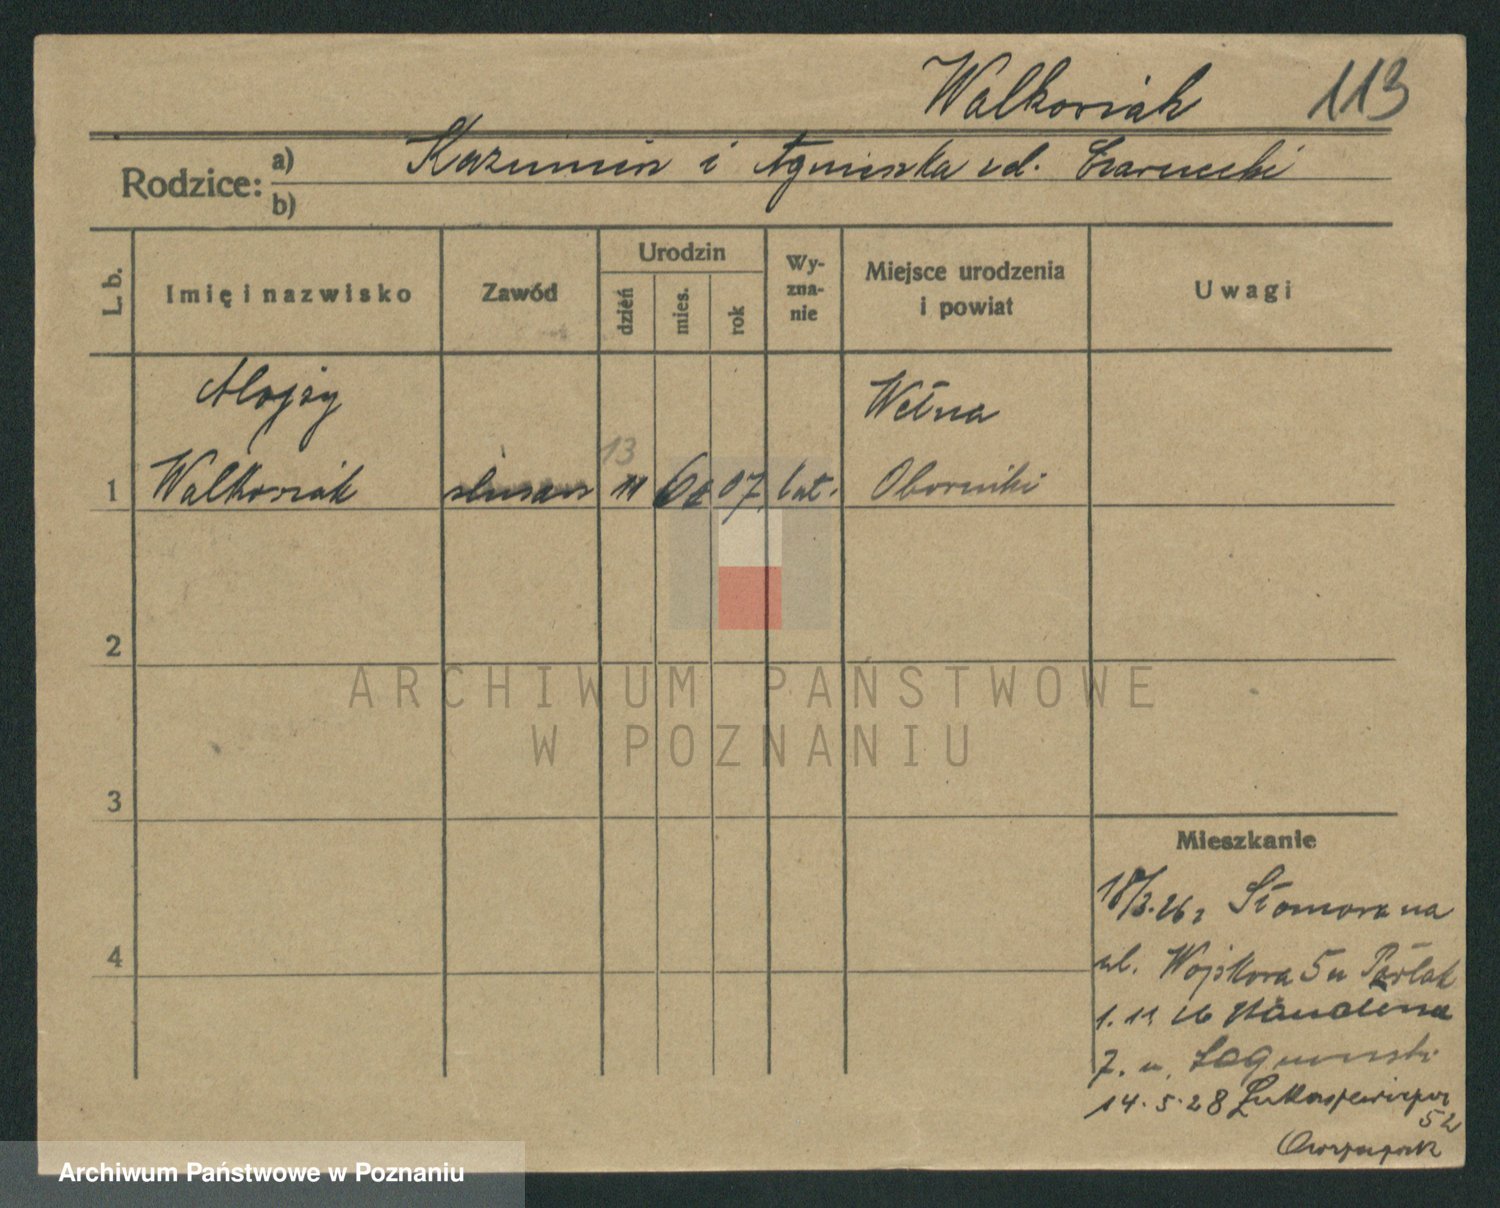 Walkowiak 113
Rodzice: a) Kazimierz i Agnieszka zd. Czarnecki
b)
L. b. Imię i nazwisko Zawód Urodzin dzień mies. rok Wy-zna-nie Miejsce urodzenia i powiat Uwagi
Alojzy Wełna
13
1 Walkowiak ślusarz 11 07 kat. Oborniki
2
ARCHIWUM PAŃSTWOWE
W POZNANIU
3
Mieszkanie
18/3.26 r
4
ul. Wojskowa 5 u Pawlak
1. 11 26
7. u. Łagowski
14. 5. 28 Łukaszewicza
52
Archiwum Państwowe w Poznaniu